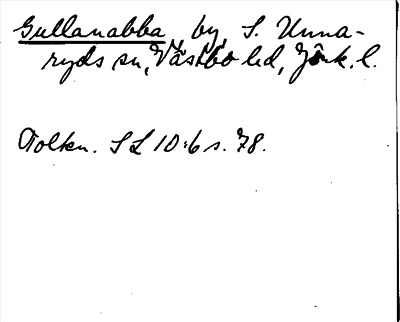 Gullanabba, by, S. Unna-
ryds sn, Västbo hd, Jönk. l.
Tolkn. SL 10:6 s. 78.